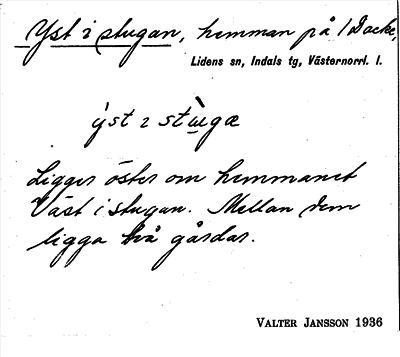 Yst i stugan, hemman på 1 Backe,
Lidens sn, Indals tg, Västernorrl. l.
ỳst ɩ stɯ̀gæ
Ligger öster om hemmanet
Väst i stugan. Mellan dem
ligga två gårdar.
VALTER JANSSON 1936